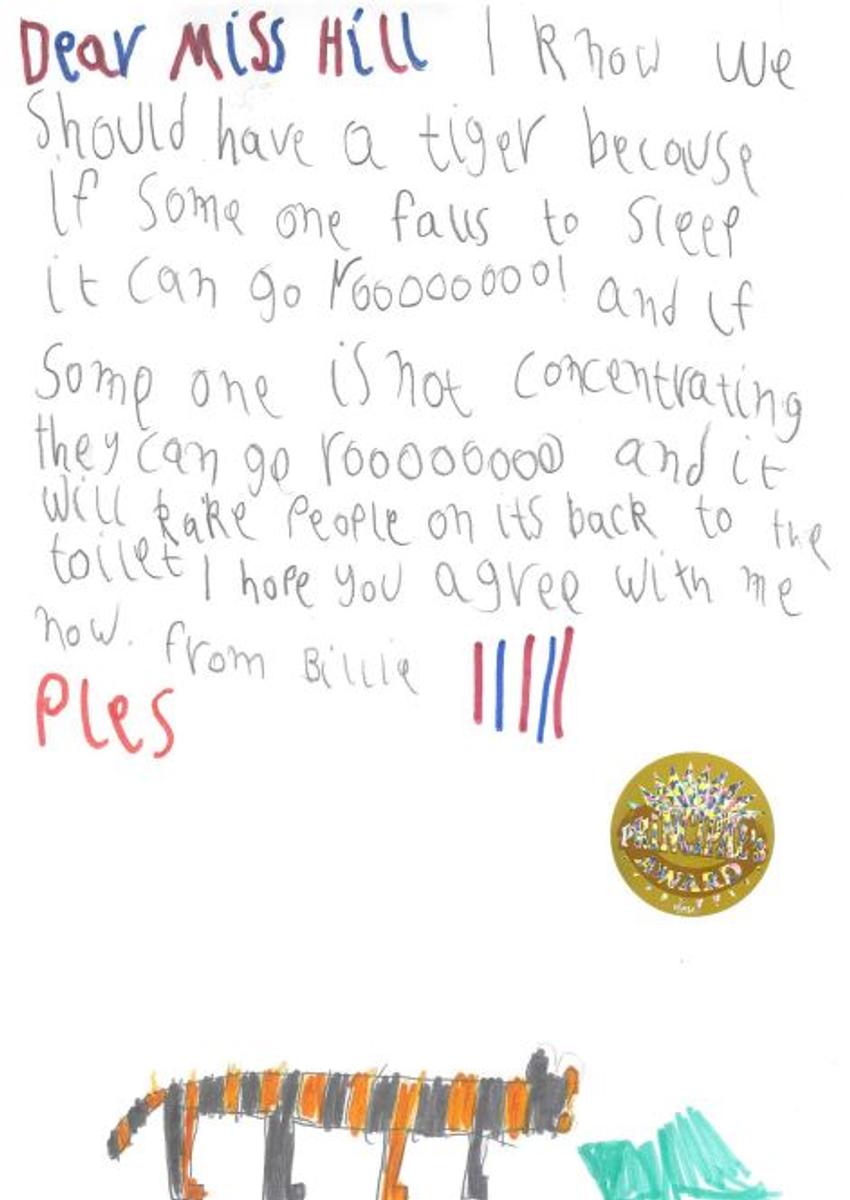 Dear Miss Hill I know we
Should have a tiger because
If Some one falls to Sleep
it can go roooooooo! and if
Some one is not concentrating
they can go roooooooo and it
will take People on its back to the
toilet I hope you agree with me
now. from Billie
Ples
PRINCIPAL'S
AWARD